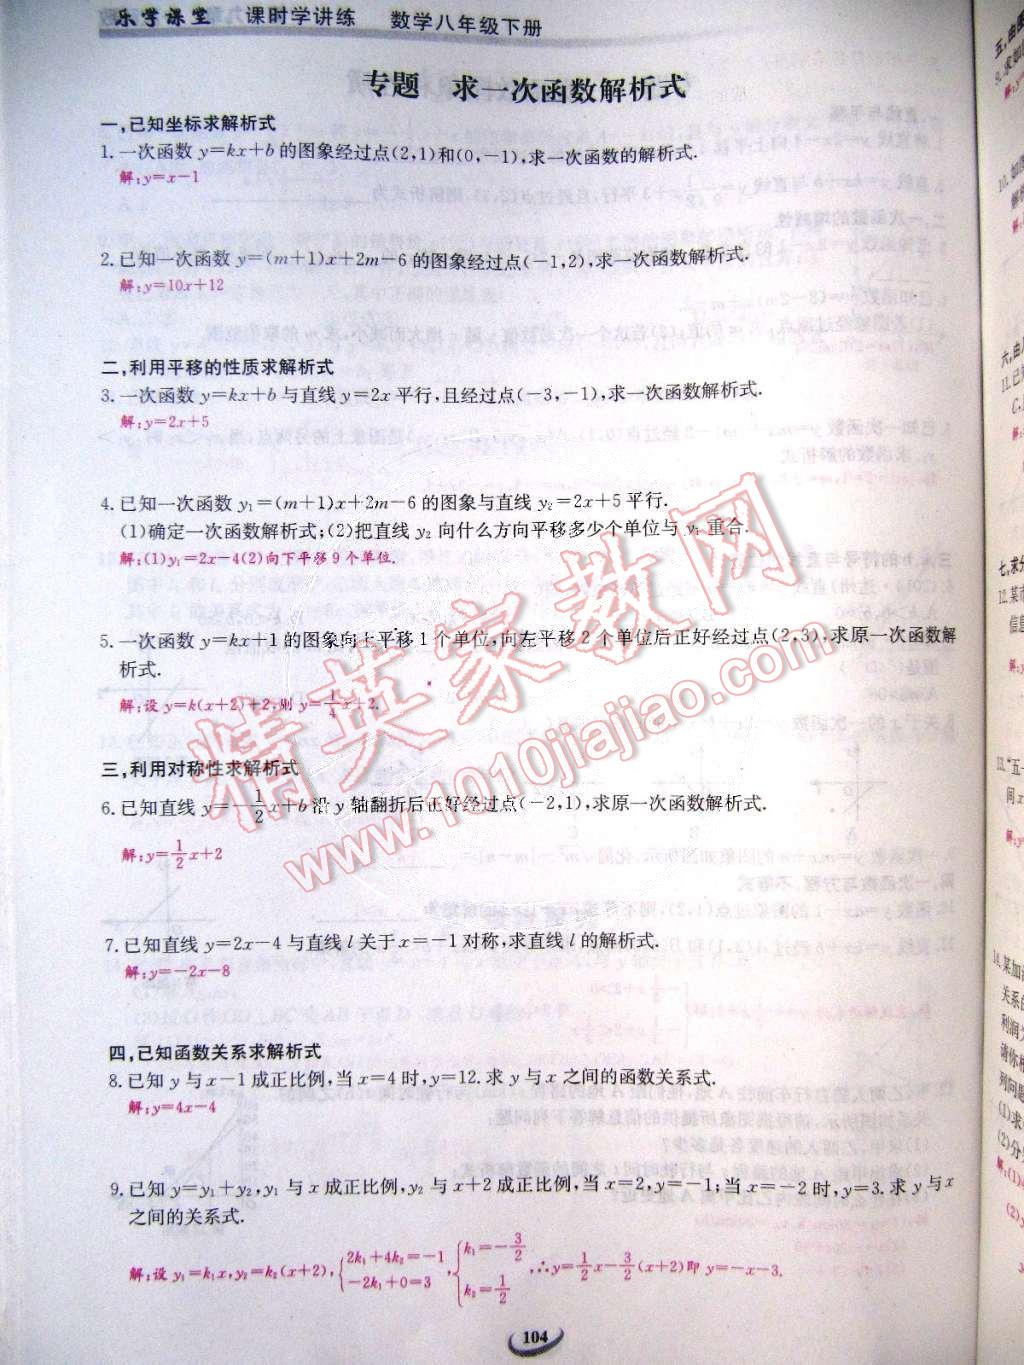 乐学课堂 课时学讲练 数学八年级下册
专题 求一次函数解析式
一,已知坐标求解析式
1.一次函数 y=kx+b 的图象经过点(2,1)和(0,-1),求一次函数的解析式.
解:y=x-1
2.已知一次函数 y=(m+1)x+2m-6 的图象经过点(-1,2),求一次函数解析式.
解:y=10x+12
二,利用平移的性质求解析式
3.一次函数 y=kx+b 与直线 y=2x 平行,且经过点(-3,-1),求一次函数解析式.
解:y=2x+5
4.已知一次函数 y₁=(m+1)x+2m-6 的图象与直线 y₂=2x+5 平行.
(1)确定一次函数解析式;(2)把直线 y₂ 向什么方向平移多少个单位与 y₁ 重合.
解:(1)y₁=2x-4(2)向下平移 9 个单位.
5.一次函数 y=kx+1 的图象向上平移 1 个单位,向左平移 2 个单位后正好经过点(2,3),求原一次函数解
析式.
解:设 y=k(x+2)+2,则 y=1/4x+2.
三,利用对称性求解析式
6.已知直线 y=-1/2x+b 沿 y 轴翻折后正好经过点(-2,1),求原一次函数解析式.
解:y=1/2x+2
7.已知直线 y=2x-4 与直线 l 关于 x=-1 对称,求直线 l 的解析式.
解:y=-2x-8
四,已知函数关系求解析式
8.已知 y 与 x-1 成正比例,当 x=4 时,y=12.求 y 与 x 之间的函数关系式.
解:y=4x-4
9.已知 y=y₁+y₂,y₁ 与 x 成正比例,y₂ 与 x+2 成正比例,当 x=2,y=-1;当 x=-2 时,y=3.求 y 与 x
之间的关系式.
解:设 y₁=k₁x,y₂=k₂(x+2),{2k₁+4k₂=-1 -2k₁+0=3,{k₁=-3/2 k₂=1/2,∴y=1/2x-3/2(x+2)即 y=-x-3.
104
精英家教网
www.1010jiajiao.com